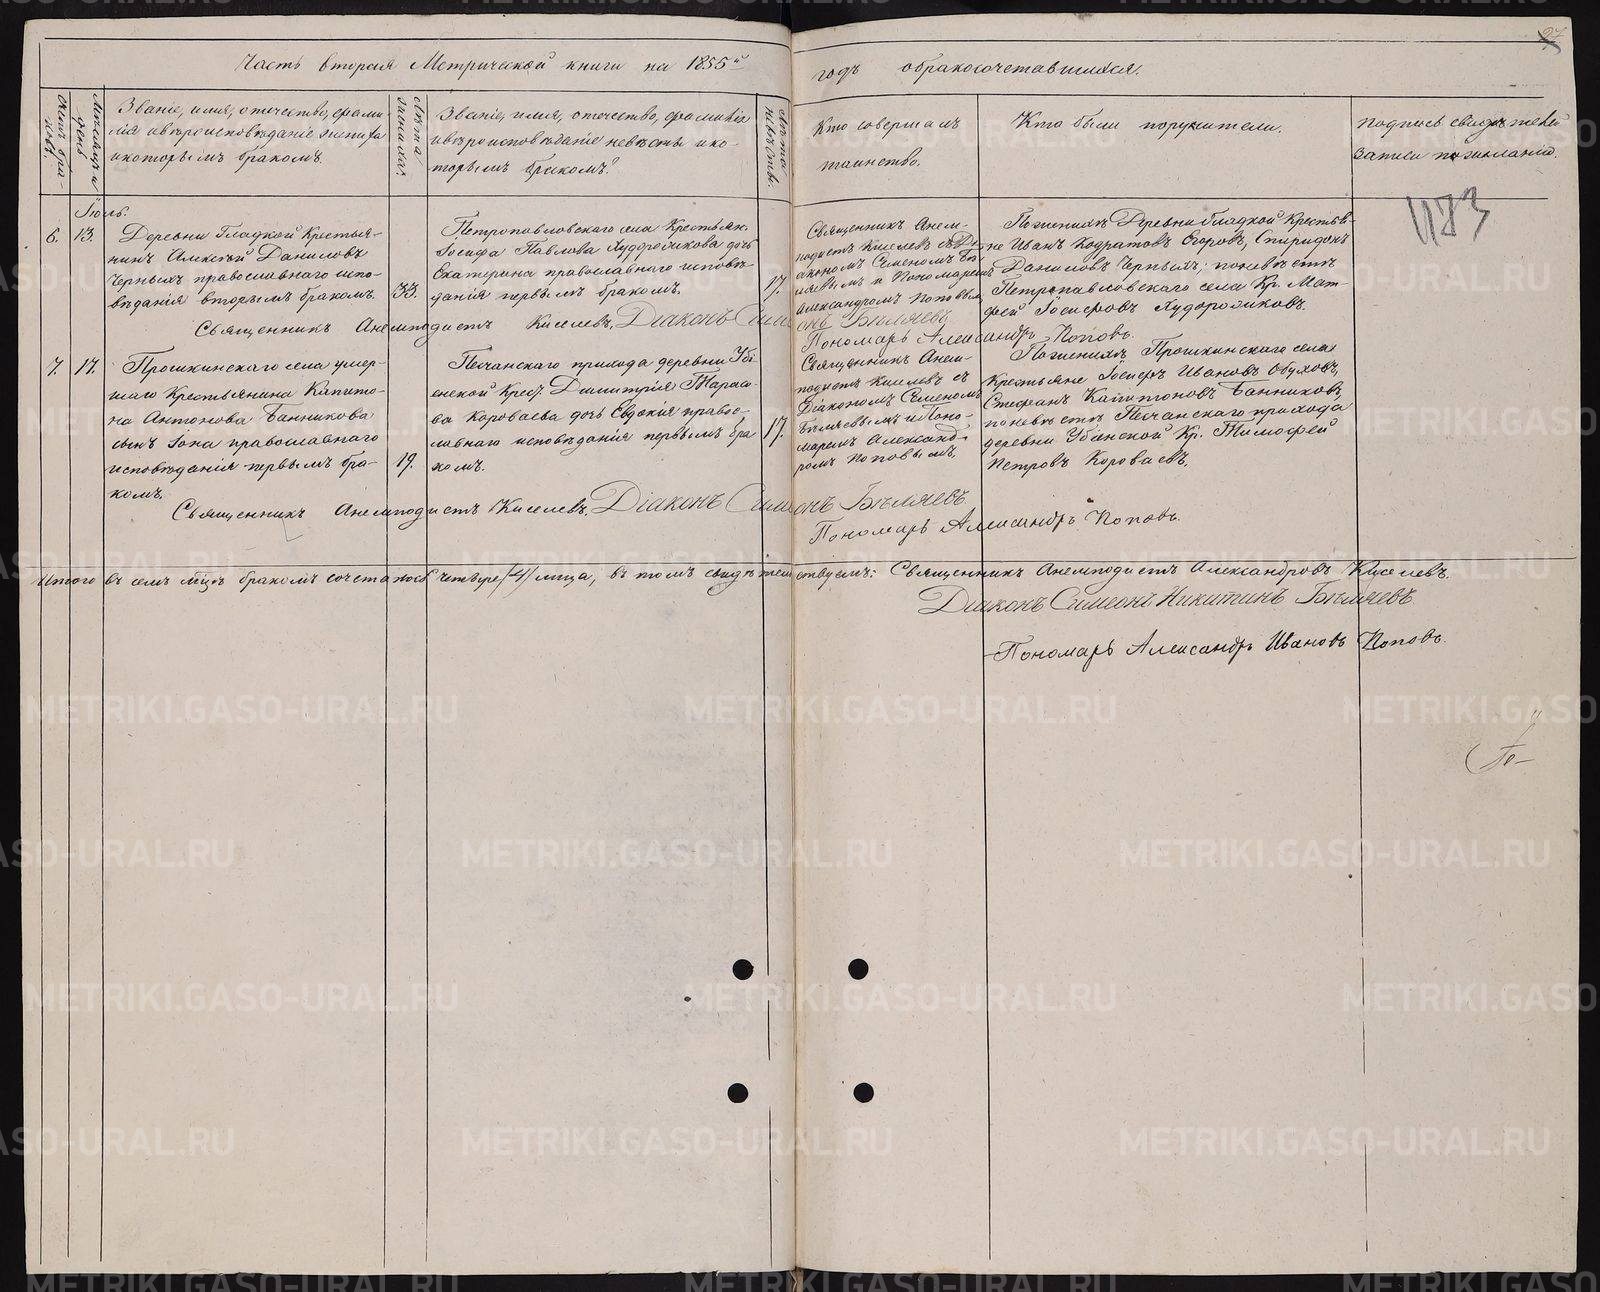 Часть вторая Метрической книги на 1855й годъ о бракосочетавшихся.
Счетъ браковъ.
Месяцъ и день
Званіе, имя, отечество, фами-
лія и вѣроисповѣданіе жениха
и которымъ бракомъ.
Лѣта жениха.
Званіе, имя, отечество, фамилія
и вѣроисповѣданіе невѣсты и ко-
торымъ бракомъ.
Лѣта невѣсты.
Кто совершалъ
таинство.
Кто были поручители.
Подпись свидѣтелей
записи по желанію.
27
1183
Іюль.
6.
13.
Деревни Гладкой Крестья-
нинъ Алексѣй Даниловъ
Черныхъ православнаго испо-
вѣданія вторымъ бракомъ.
33.
Петропавловскаго села Крестьян.
Іосифа Павлова Худорожкова дочь
Екатерина православнаго исповѣ-
данія первымъ бракомъ.
17.
Священникъ Анем-
подистъ Киселевъ съ Ді-
акономъ Симеономъ Бѣ-
ляевымъ и Пономаремъ
Александромъ Поповымъ
По женихѣ Деревни Гладкой Крестья-
не Иванъ Кодратовъ Егоровъ, Спиридонъ
Даниловъ Черныхъ; по невѣстѣ
Петропавловскаго села Кр. Мат-
фей Іосифовъ Худорожковъ.
Священникъ Анемподистъ Киселевъ. Діаконъ Симеонъ Бѣляевъ
Пономарь Александръ Поповъ.
7.
17.
Прошкинскаго села умер-
шаго Крестьянина Капито-
на Антонова Банникова
сынъ Іона православнаго
исповѣданія первымъ бра-
комъ.
19.
Песчанскаго прихода деревни Уби-
енской Крест. Димитрія Тарасо-
ва Короваева дочь Евдокія правос-
лавнаго исповѣданія первымъ бра
комъ.
17.
Священникъ Анем-
подистъ Киселевъ съ
Діакономъ Симеономъ
Бѣляевымъ и Поно-
маремъ Александ-
ромъ Поповымъ.
По женихѣ Прошкинскаго села
Крестьяне Іосифъ Ивановъ Обуховъ,
Стефанъ Капитоновъ Банниковъ,
по невѣстѣ Песчанскаго прихода
деревни Убіенской Кр. Тимофей
Петровъ Короваевъ.
Священникъ Анемподистъ Киселевъ. Діаконъ Симеонъ Бѣляевъ
Пономарь Александръ Поповъ.
Итого въ семъ мѣцѣ бракомъ сочеталось четыре /4/ лица, въ томъ свидѣтельствуемъ: Священникъ Анемподистъ Александровъ Киселевъ.
Діаконъ Симеонъ Никитинъ Бѣляевъ.
Пономарь Александръ Ивановъ Поповъ.
METRIKI.GASO-URAL.RU